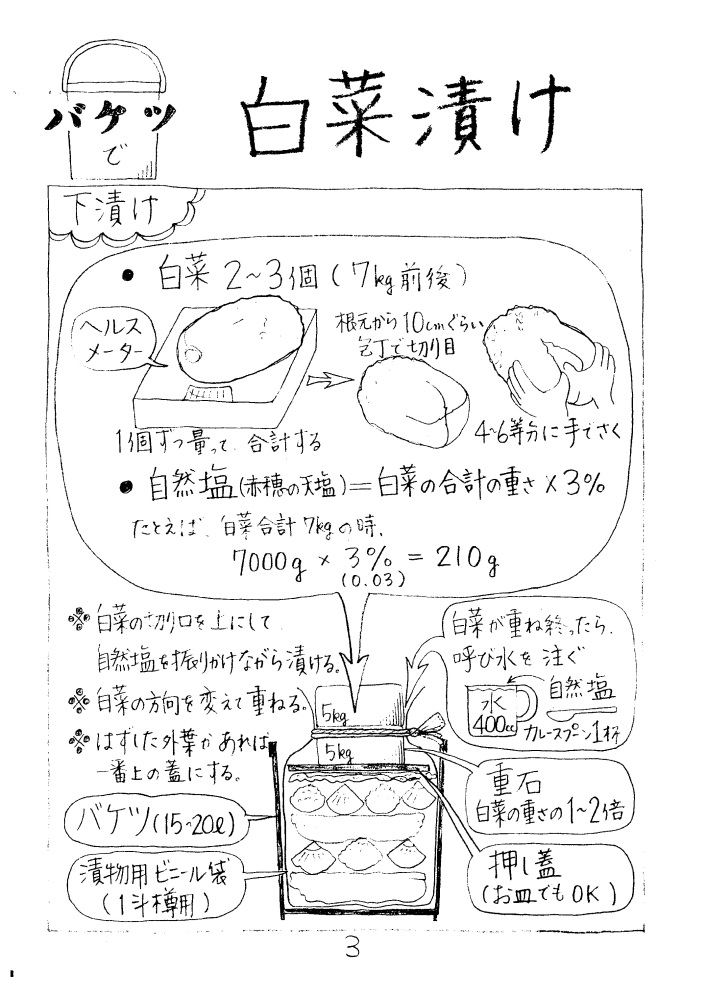 バケツ
で
白菜漬け
下漬け
● 白菜 2~3個 (7kg前後)
ヘルス
メーター
根元から10cmぐらい
包丁で切り目
1個ずつ量って、合計する
4~6等分に手でさく
● 自然塩(赤穂の天塩)=白菜の合計の重さ×3%
たとえば、白菜合計7kgの時、
7000g × 3% = 210g
(0.03)
※ 白菜の切り口を上にして
自然塩を振りかけながら漬ける。
※ 白菜の方向を変えて重ねる。
※ はずした外葉があれば、
一番上の蓋にする。
白菜が重ね終ったら、
呼び水を注ぐ
水
400cc
自然塩
カレースプーン1杯
5kg
5kg
重石
白菜の重さの1~2倍
バケツ(15~20ℓ)
押し蓋
(お皿でもOK)
漬物用ビニール袋
(1斗樽用)
3